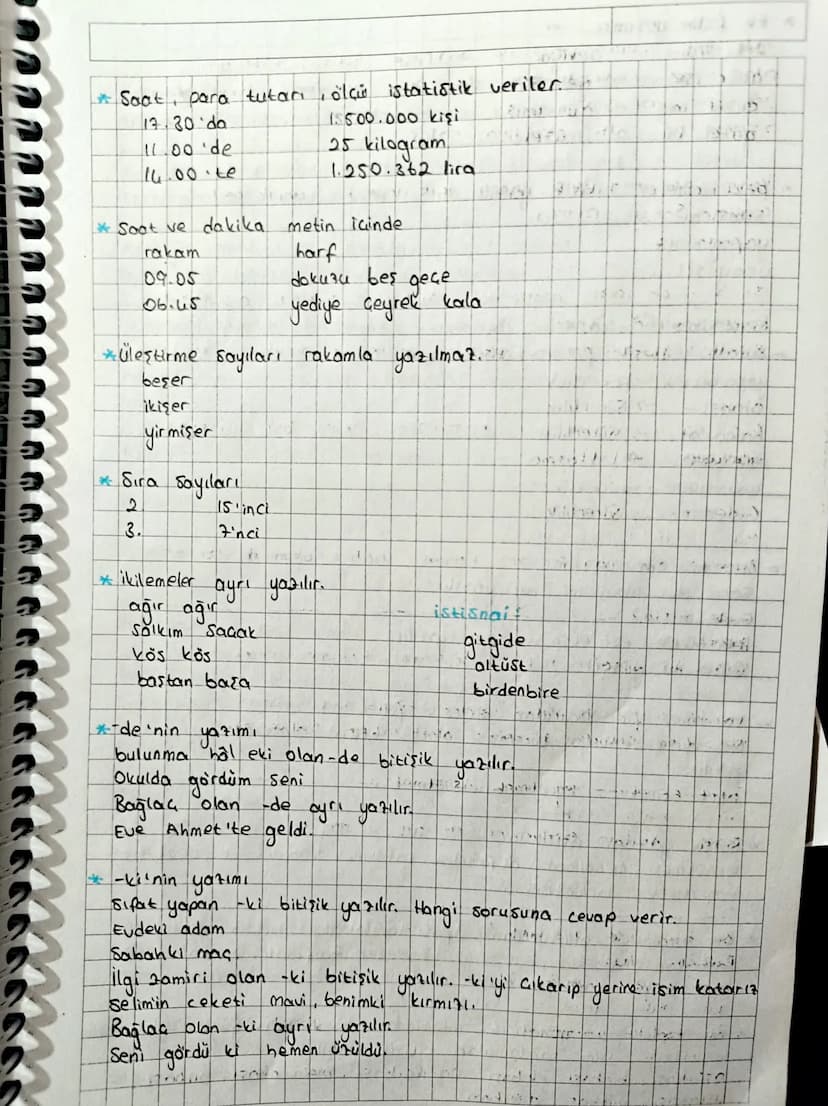 * Saat, para tutarı, ölçü istatistik veriler.
17.30'da 1.500.000 kişi
11.00'de 25 kilogram
14.00'te 1.250.362 lira
* Saat ve dakika metin içinde
rakam harf
09.05 dokuzu beş geçe
06.45 yediye çeyrek kala
* Üleştirme sayıları rakamla yazılmaz.
beşer
ikişer
yirmişer
* Sıra sayıları
2. 15'inci
3. 7'nci
* İkilemeler ayrı yazılır.
ağır ağır istisnai:
salkım saçak gitgide
kös kös altüst
baştan başa birdenbire
* -de'nin yazımı
bulunma hâl eki olan -de bitişik yazılır.
Okulda gördüm seni
Bağlaç olan -de ayrı yazılır.
Eve Ahmet'te geldi.
* -ki'nin yazımı
Sıfat yapan -ki bitişik yazılır. Hangi sorusuna cevap verir.
Evdeki adam
Sabahki maç
İlgi zamiri olan -ki bitişik yazılır. -ki'yi çıkarıp yerine isim katarız
Selimin ceketi mavi, benimki kırmızı.
Bağlaç olan -ki ayrı yazılır.
Seni gördü ki hemen üzüldü.